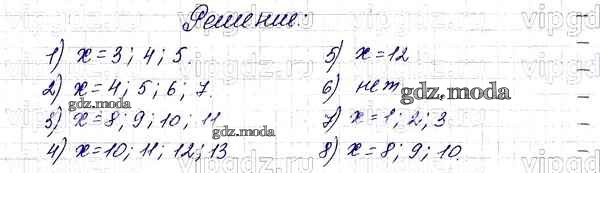 Решение:
1) x=3; 4; 5.
2) x=4; 5; 6; 7.
3) x=8; 9; 10; 11
4) x=10; 11; 12; 13
5) x=12
6) нет
7) x=1; 2; 3.
8) x=8; 9; 10.
gdz.moda
gdz.moda
vipgdz.ru
vipgdz.ru
vipgdz.ru